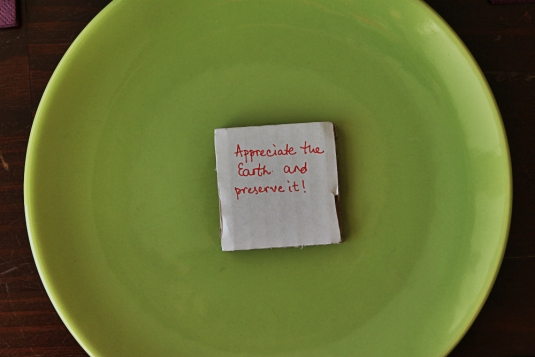 Appreciate the
Earth and
preserve it!